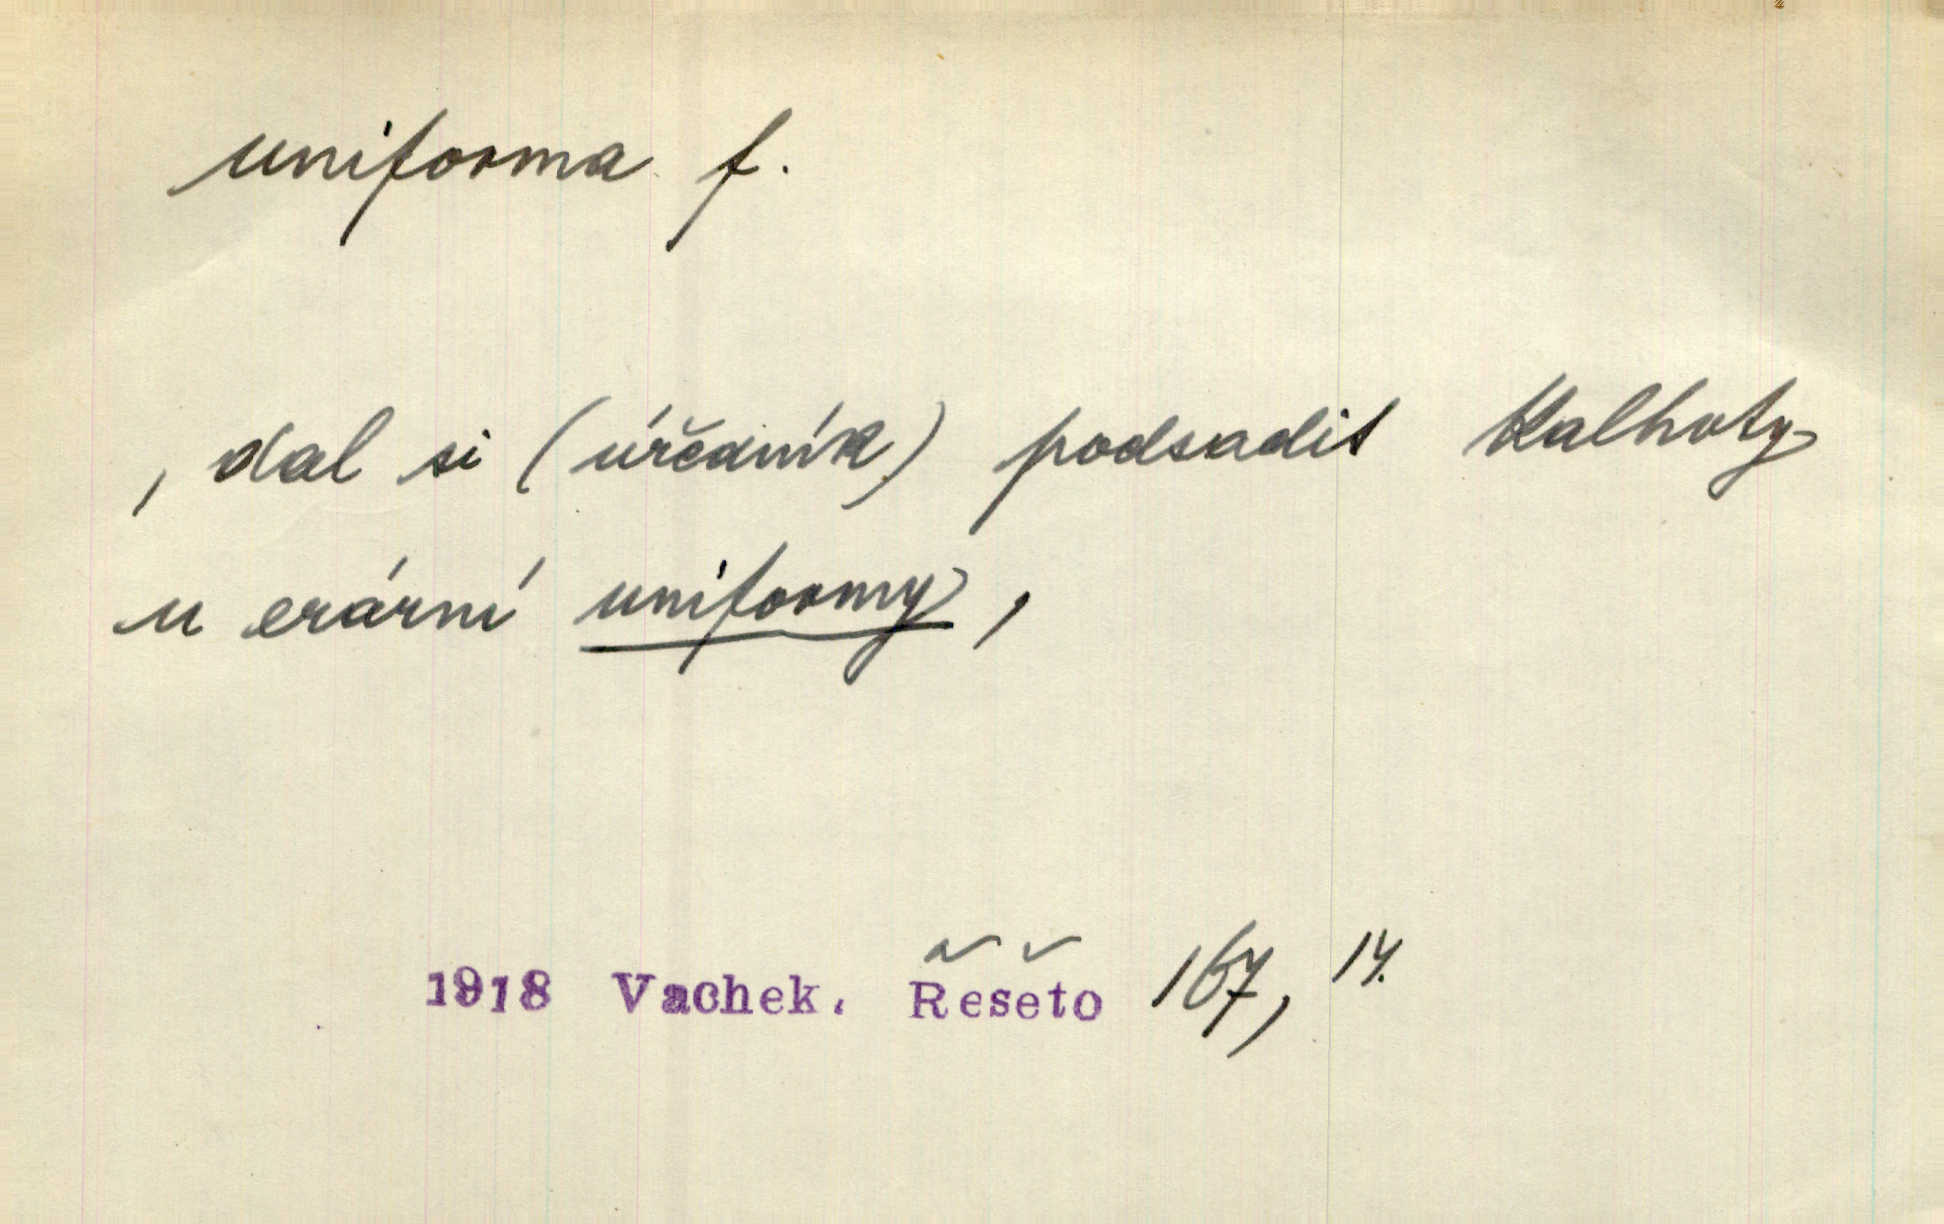 uniforma f.
, dal si (úředník) podsadit kalhoty
u erární uniformy,
1918 Vachek. Řešeto 167, 14.